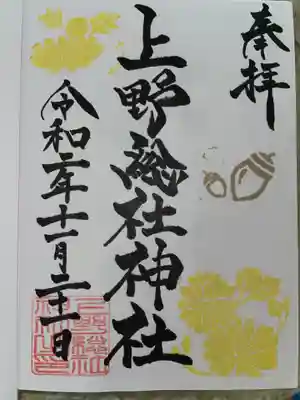 奉拝
上野総社神社
令和二年十一月二十一日